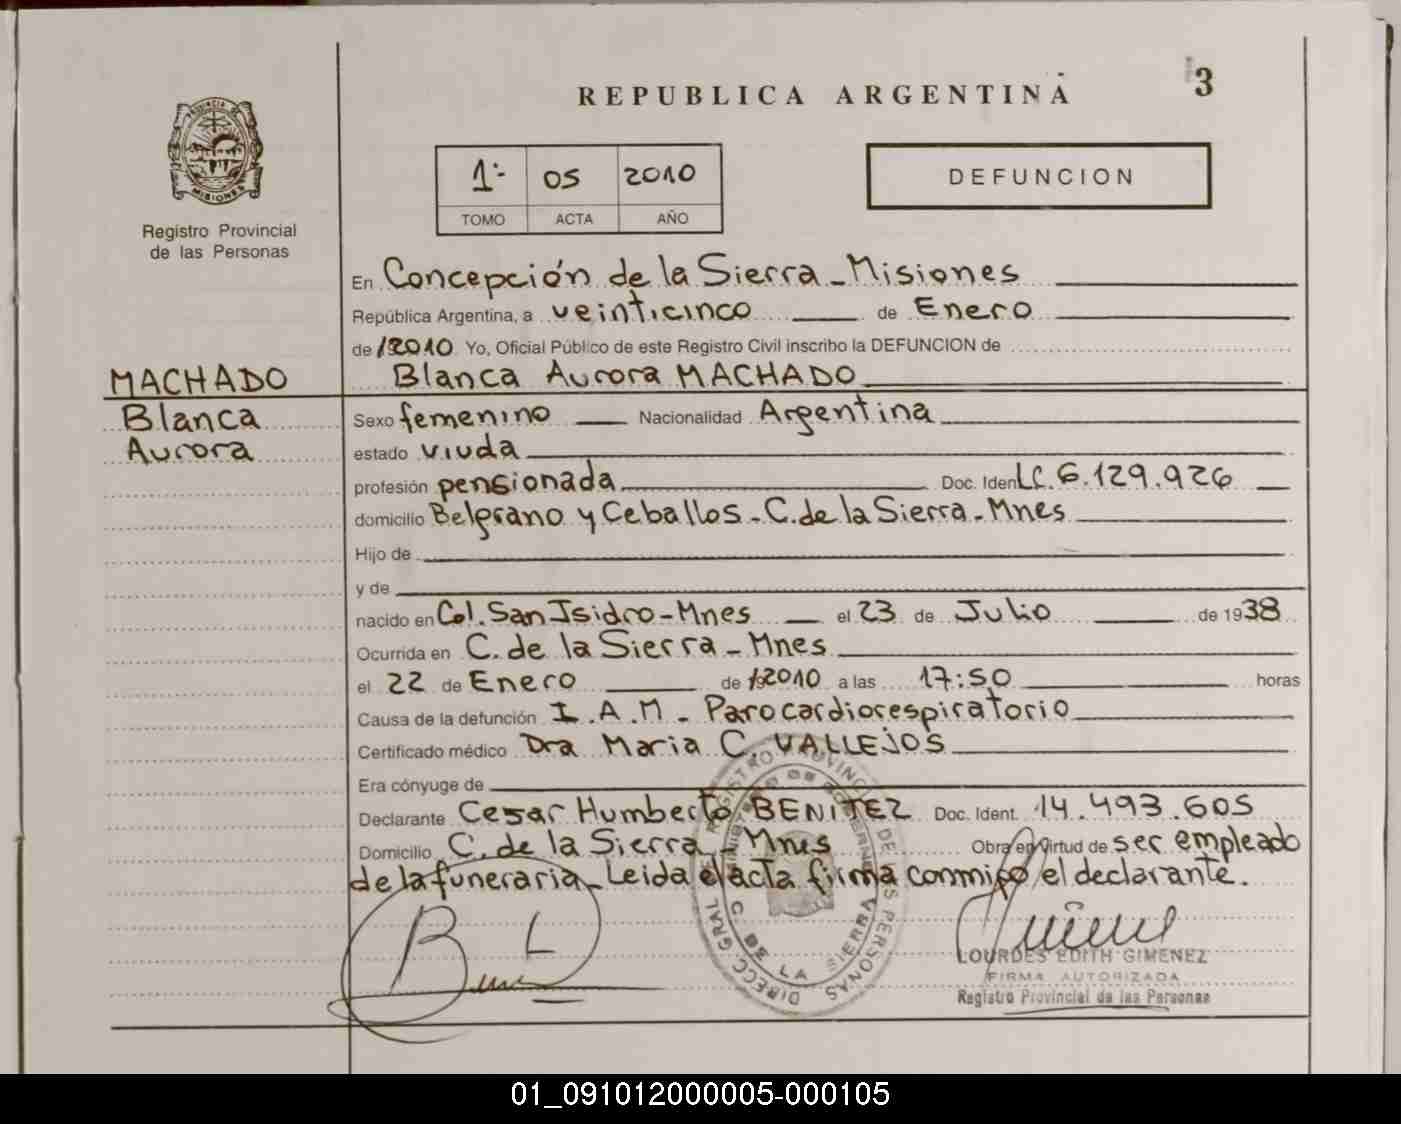 3
REPUBLICA ARGENTINA
PROVINCIA DE MISIONES
Registro Provincial
de las Personas
1º 05 2010
TOMO ACTA AÑO
DEFUNCION
En Concepción de la Sierra - Misiones
República Argentina, a veinticinco de Enero
de 2010 Yo, Oficial Público de este Registro Civil inscribo la DEFUNCION de
MACHADO Blanca Aurora MACHADO
Blanca Sexo femenino Nacionalidad Argentina
Aurora estado viuda
profesión pensionada Doc. Iden LC. 6.129.926
domicilio Belgrano y Ceballos - C. de la Sierra - Mnes
Hijo de
y de
nacido en Col. San Isidro - Mnes el 23 de Julio de 1938
Ocurrida en C. de la Sierra - Mnes
el 22 de Enero de 2010 a las 17:50 horas
Causa de la defunción I.A.M - Parocardiorespiratorio
Certificado médico Dra Maria C. VALLEJOS
Era cónyuge de
Declarante Cesar Humberto BENITEZ Doc. Ident. 14.493.605
Domicilio C. de la Sierra - Mnes Obra en Virtud de ser empleado
de la funeraria - Leida el acta firma conmigo el declarante.
DIRECC. GRAL DE REGISTRO PROVINCIAL DE LAS PERSONAS
C DE LA SIERRA
LOURDES EDITH GIMENEZ
FIRMA AUTORIZADA
Registro Provincial de las Personas
01_091012000005-000105